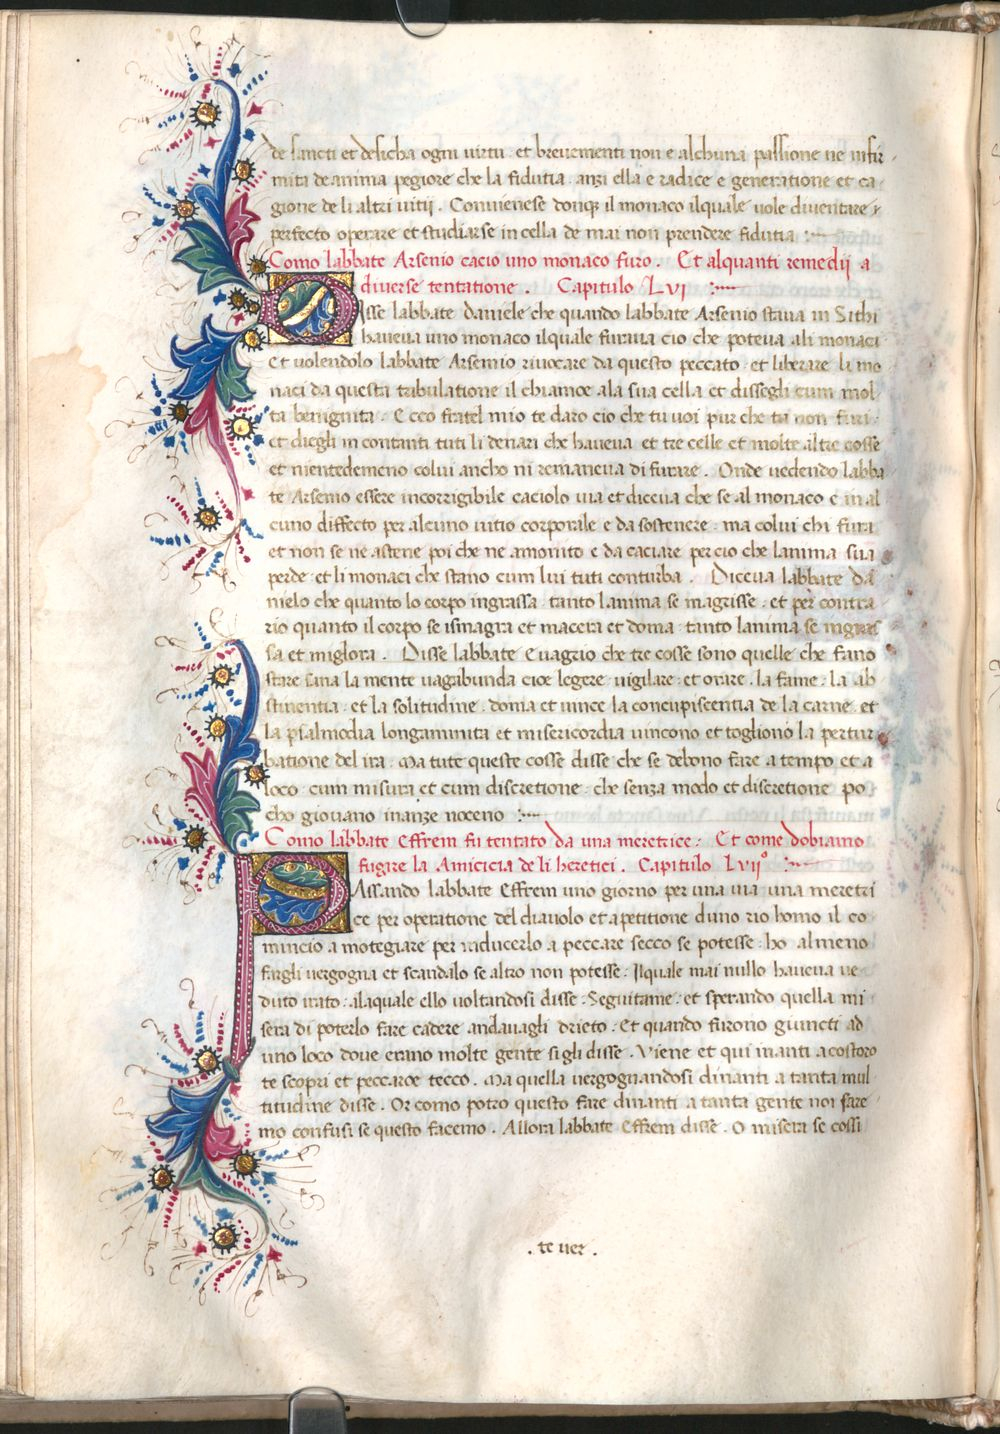 de sancti et desicha ogni uirtu · et breuementi non e alchuna passione ne infir
mita de anima pegiore che la fidutia · anzi ella e radice e generatione et ca
gione de li altri uitij . Conuienese donqȝ il monaco ilquale uole diuentare
perfecto operare et studiarse in cella de mai non prendere fidutia :~
Como labbate Arsenio cacio uno monaco furo . Et alquanti remedij a
diuerse tentatione . Capitulo LVI :~
DIsse labbate daniele che quando labbate Arsenio staua in Sithi
haueua uno monaco ilquale furaua cio che poteua ali monaci
Et uolendolo labbate Arsemio riuocare da questo peccato · et liberare li mo
naci da questa tribulatione il chiamoe ala sua cella et dissegli cum mol
ta benignita · Ecco fratel mio te daro cio che tu uoi pur che tu non furi ·
et diegli in contanti tuti li denari che haueua et tre celle et molte altre cosse
et nientedemeno colui ancho ni remaneua di furare . Onde uedendo labba
te Arsenio essere incorrigibile caciolo uia et diceua che se al monaco e in al
cuno diffecto per alcuno uitio corporale e da sostenere · ma colui chi fura
et non se ne astene poi che ne amonito e da caciare per cio che lanima sua
perde · et li monaci che stano cum lui tuti conturba . Diceua labbate da
nielo che quanto lo corpo ingrassa · tanto lanima se magrisse · et per contra
rio quanto il corpo se ismagra et macera et doma · tanto lanima se ingras
sa et miglora . Disse labbate Euagrio che tre cosse sono quelle che fano
stare sana la mente uagabunda cioe legere · uigilare · et orare . la fame · la ab
stinentia · et la solitudine · doma et uince la concupiscentia de la carne · et
la psalmodia longanimita et misericordia uincono et togliono la pertur
batione del ira · Ma tute queste cosse disse che se debono fare a tempo et a
loco · cum misura et cum discretione · che senza modo et discretione po
cho giouano inanze noceno :~
Como labbate Effrem fu tentato da una meretrice · Et come dobiamo
fugire la Amicicia de li heretici . Capitulo LVIIº :~
PAssando labbate Effrem uno giorno per una uia una meretri
ce per operatione del diauolo et apetitione duno rio homo il co
mincio a motegiare per raducerlo a peccare secco se potesse · ho almeno
fargli uergogna et scandalo se altro non potesse · Ilquale mai nullo haueua ue
duto irato · alaquale ello uoltandosi disse · Seguitame · et sperando quella mi
sera di poterlo fare cadere andauagli drieto · Et quando furono giuncti ad
uno loco doue erano molte gente si gli disse . Viene et qui inanti a costoro
te scopri et peccaroe tecco . Ma quella uergognandosi dinanti a tanta mul
titudine disse . Or como potro questo fare dinanti a tanta gente noi sare
mo confusi se questo facemo . Allora labbate Effrem disse . O misera se cossi
. te uer .